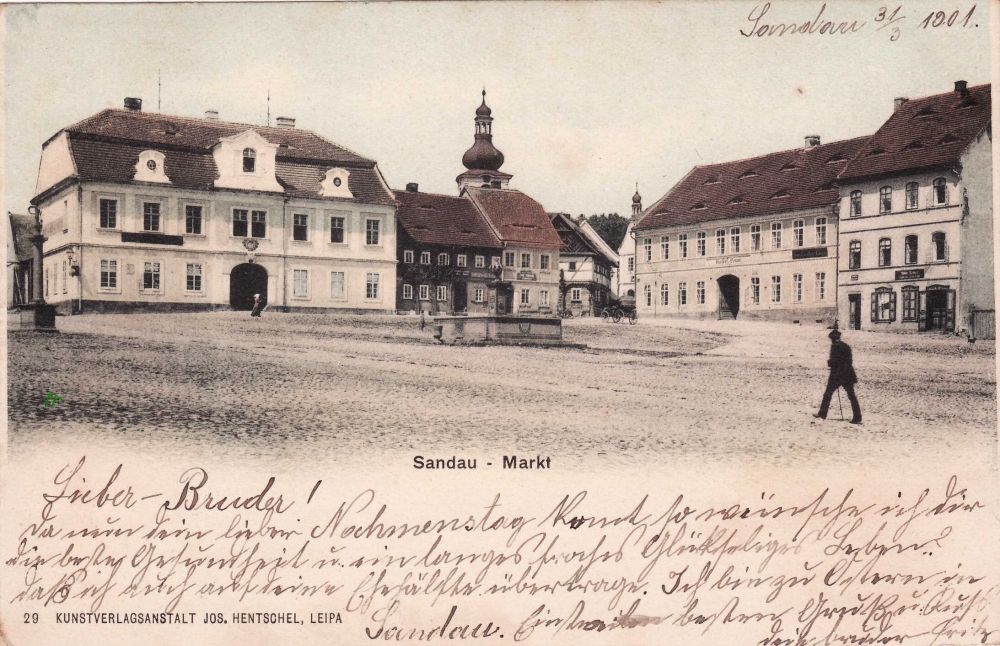 Sandau 31/3 1901.
Sandau - Markt
Lieber-Bruder!
da nun dein lieber Nahmenstag komt, so wünsche ich dir
die besten Gesundheit u. ein langes frohes Glükseliges Leben.
daß ich auch auf deine Ehehälfte übertrage. Ich bin zu Ostern in
Sandau. Einstweilen besten Gruß u. Kuß
dein bruder Fritz
29 KUNSTVERLAGSANSTALT JOS. HENTSCHEL, LEIPA